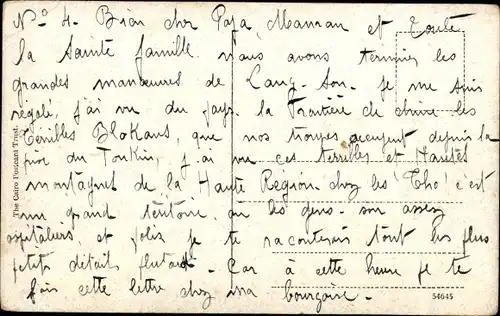 N° 4. Bien cher Papa, Maman et toute
la Sainte famille. nous avons terminer les
grandes manœuvres de Lang-Son. je me suis
regalé, j'ai vu du pays. la Frontière de chine les
terribles Blokaus, que nos troupes occupent depuis la
prise du Tonkin, j'ai vu ces terribles et Hautes
montagnes de la Haute Region chez les "Tho" c'est
un grand territoire, ou les gens son assez
ospitaliers, et polis je te raconterais tout les plus
petit détails plutard - Car à cette heure je te
fais cette lettre chez ma bourgoise -
The Cairo Postcard Trust.
54645